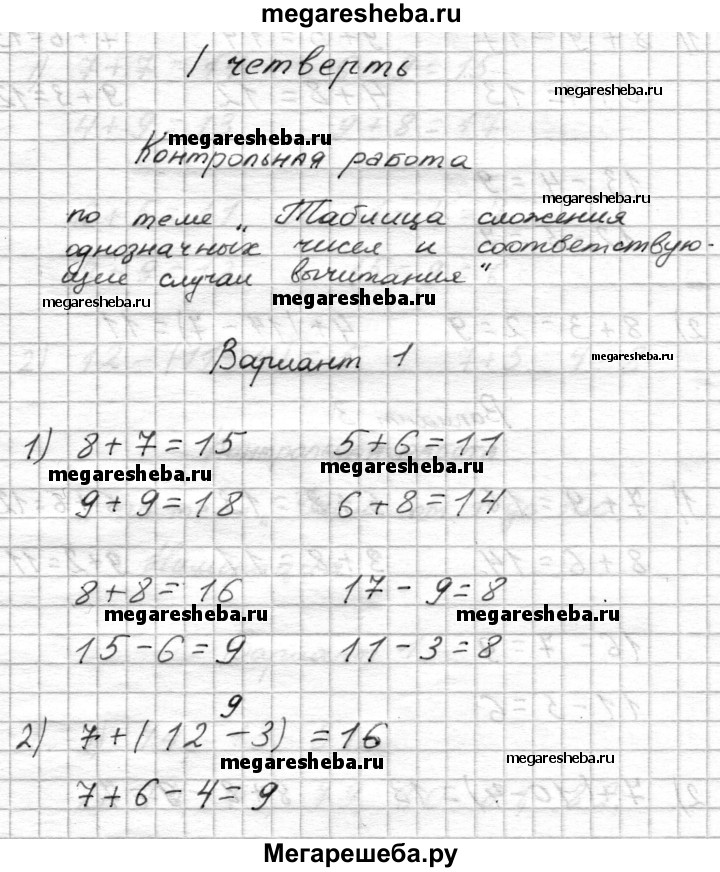 megaresheba.ru
1 четверть
megaresheba.ru
megaresheba.ru
Контрольная работа
megaresheba.ru
по теме „Таблица сложения
однозначных чисел и соответствую-
щие случаи вычитания“
megaresheba.ru megaresheba.ru
Вариант 1
megaresheba.ru
1) 8+7=15 5+6=11
megaresheba.ru megaresheba.ru
9+9=18 6+8=14
8+8=16 17-9=8
megaresheba.ru megaresheba.ru
15-6=9 11-3=8
9
2) 7+(12-3)=16
megaresheba.ru megaresheba.ru
7+6-4=9
Мегарешеба.ру